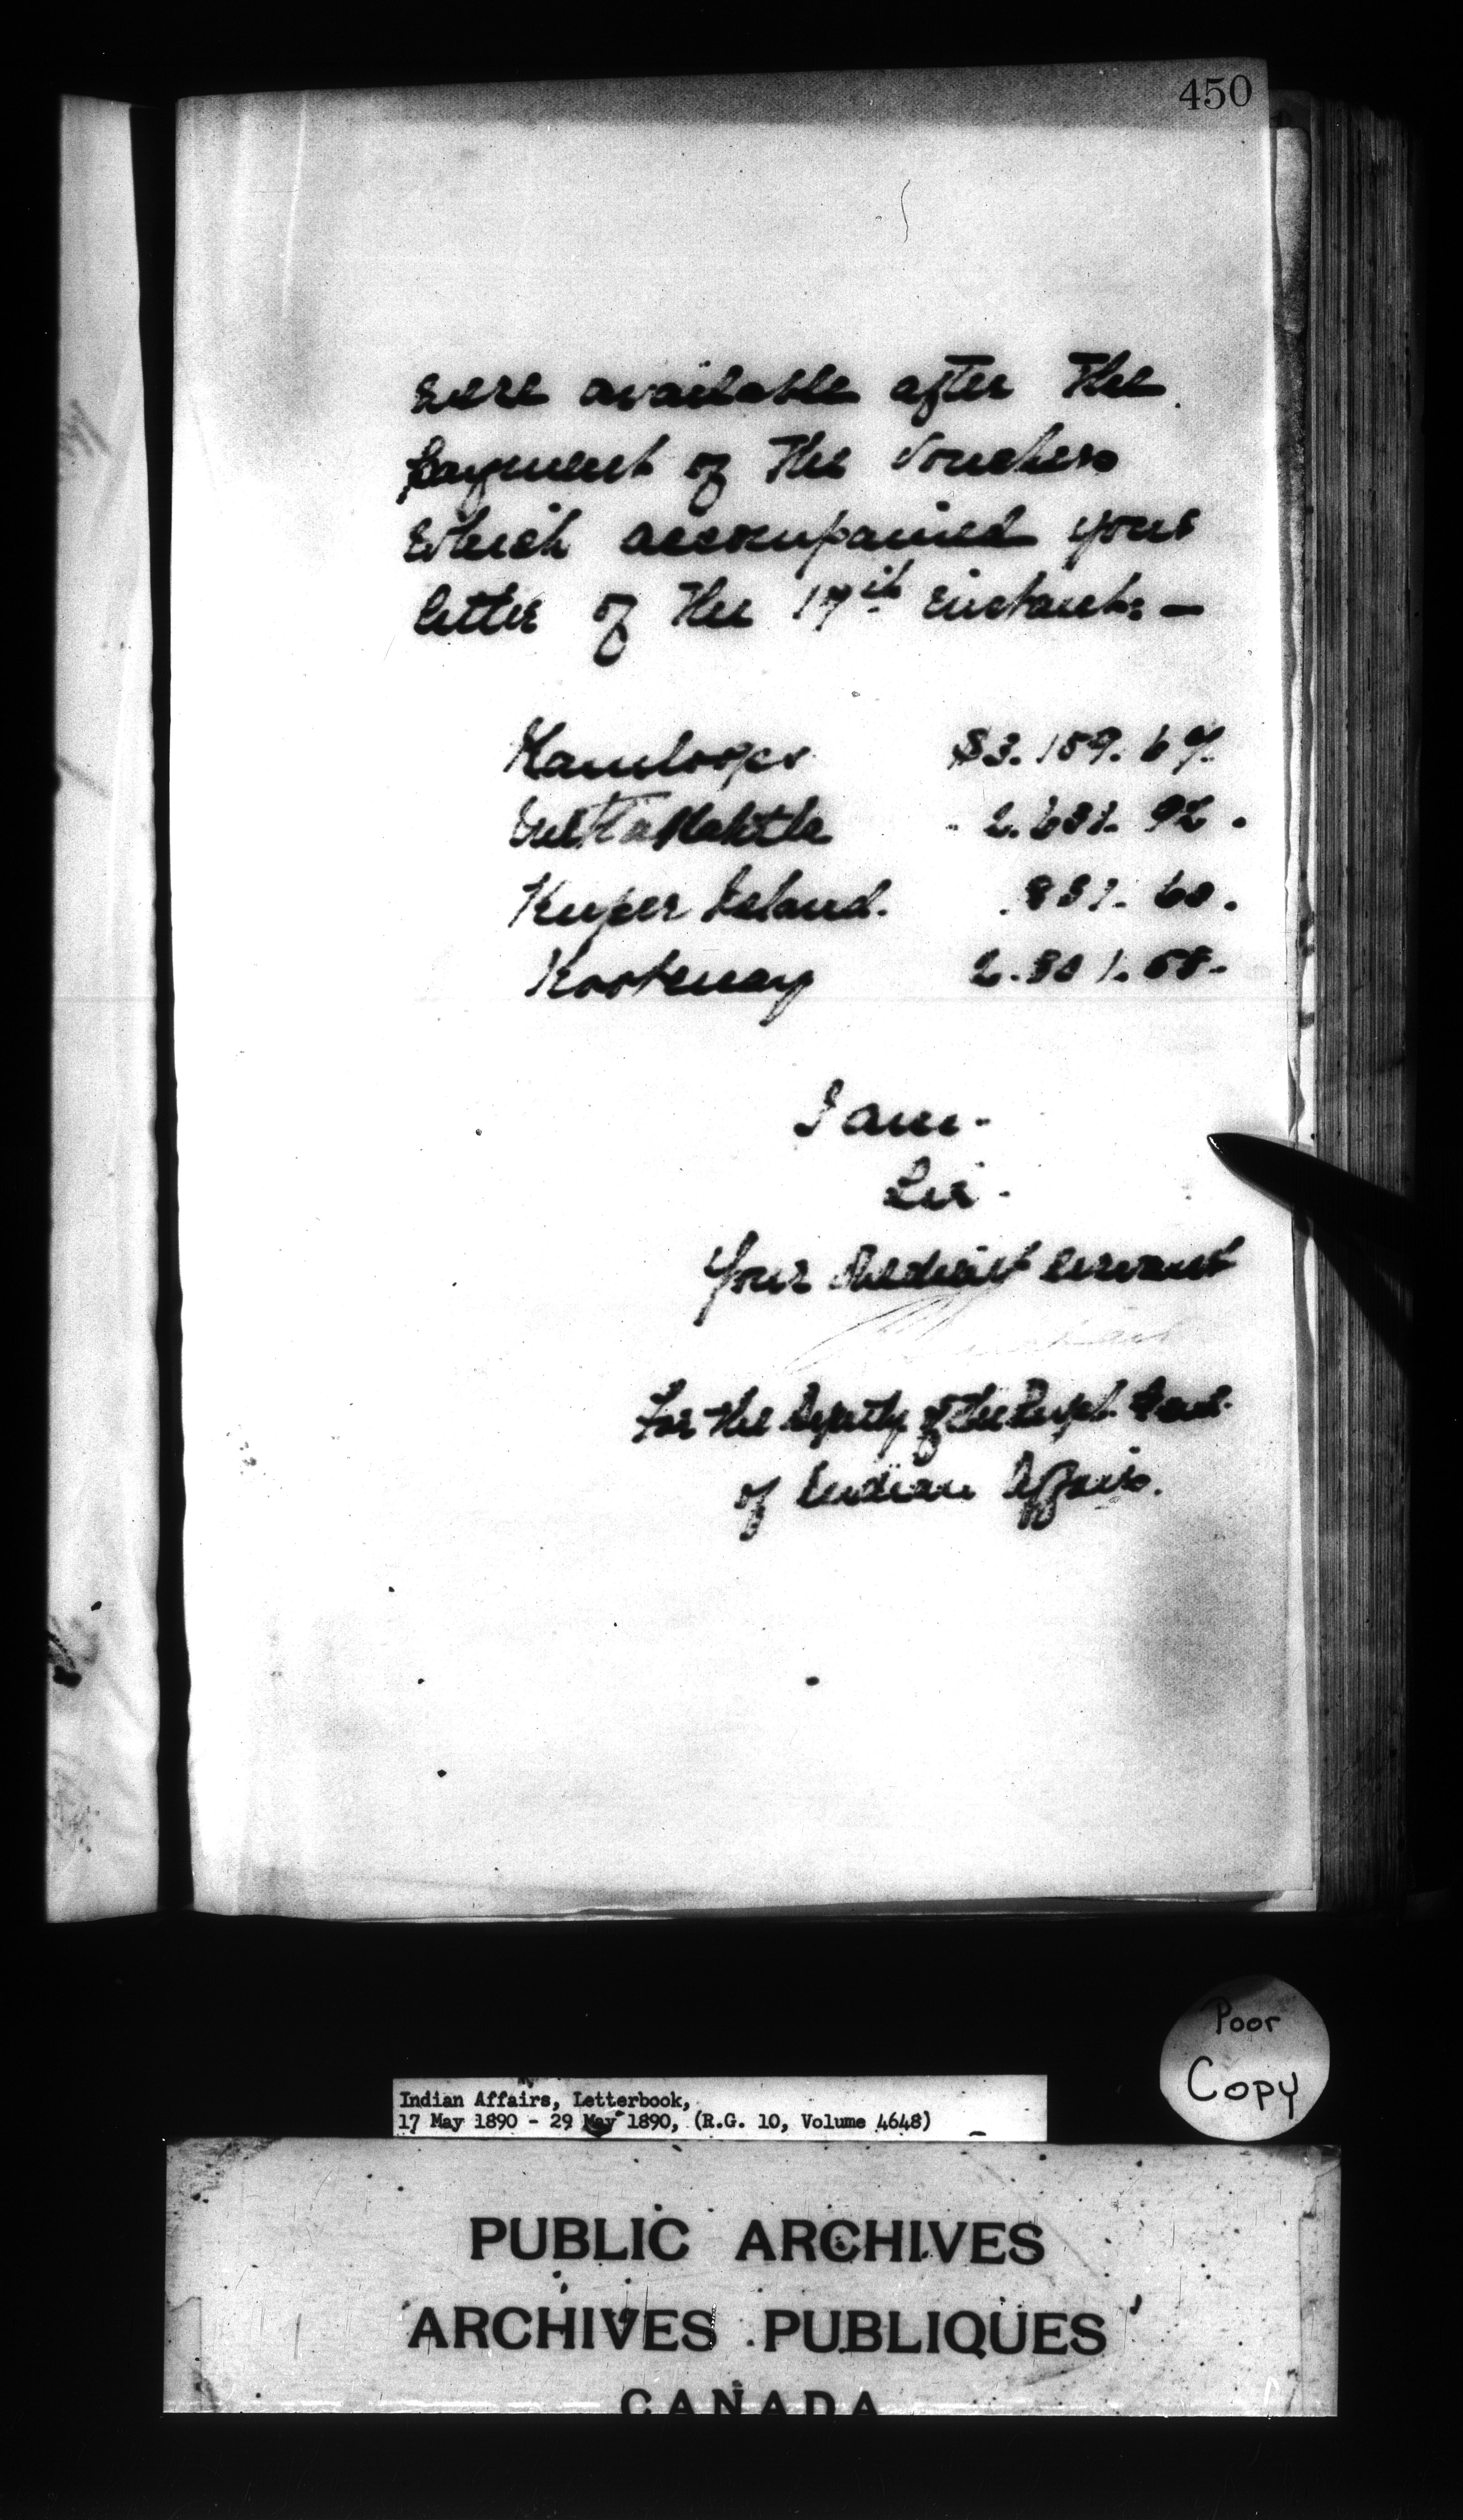 450
were available after the
payment of the vouchers
which accompanied your
letter of the 17th instant:—
Kamloops $3.159.67.
2.631. 92.
Kuper Island. .831. 60.
Kootenay 2.801.58.
I am.
Sir.
Your obedient servant
For the Deputy of the Supt. Genl.
of Indian Affairs.
Poor
Copy
Indian Affairs, Letterbook,
17 May 1890 - 29 May 1890, (R.G. 10, Volume 4648)
PUBLIC ARCHIVES
ARCHIVES PUBLIQUES
CANADA